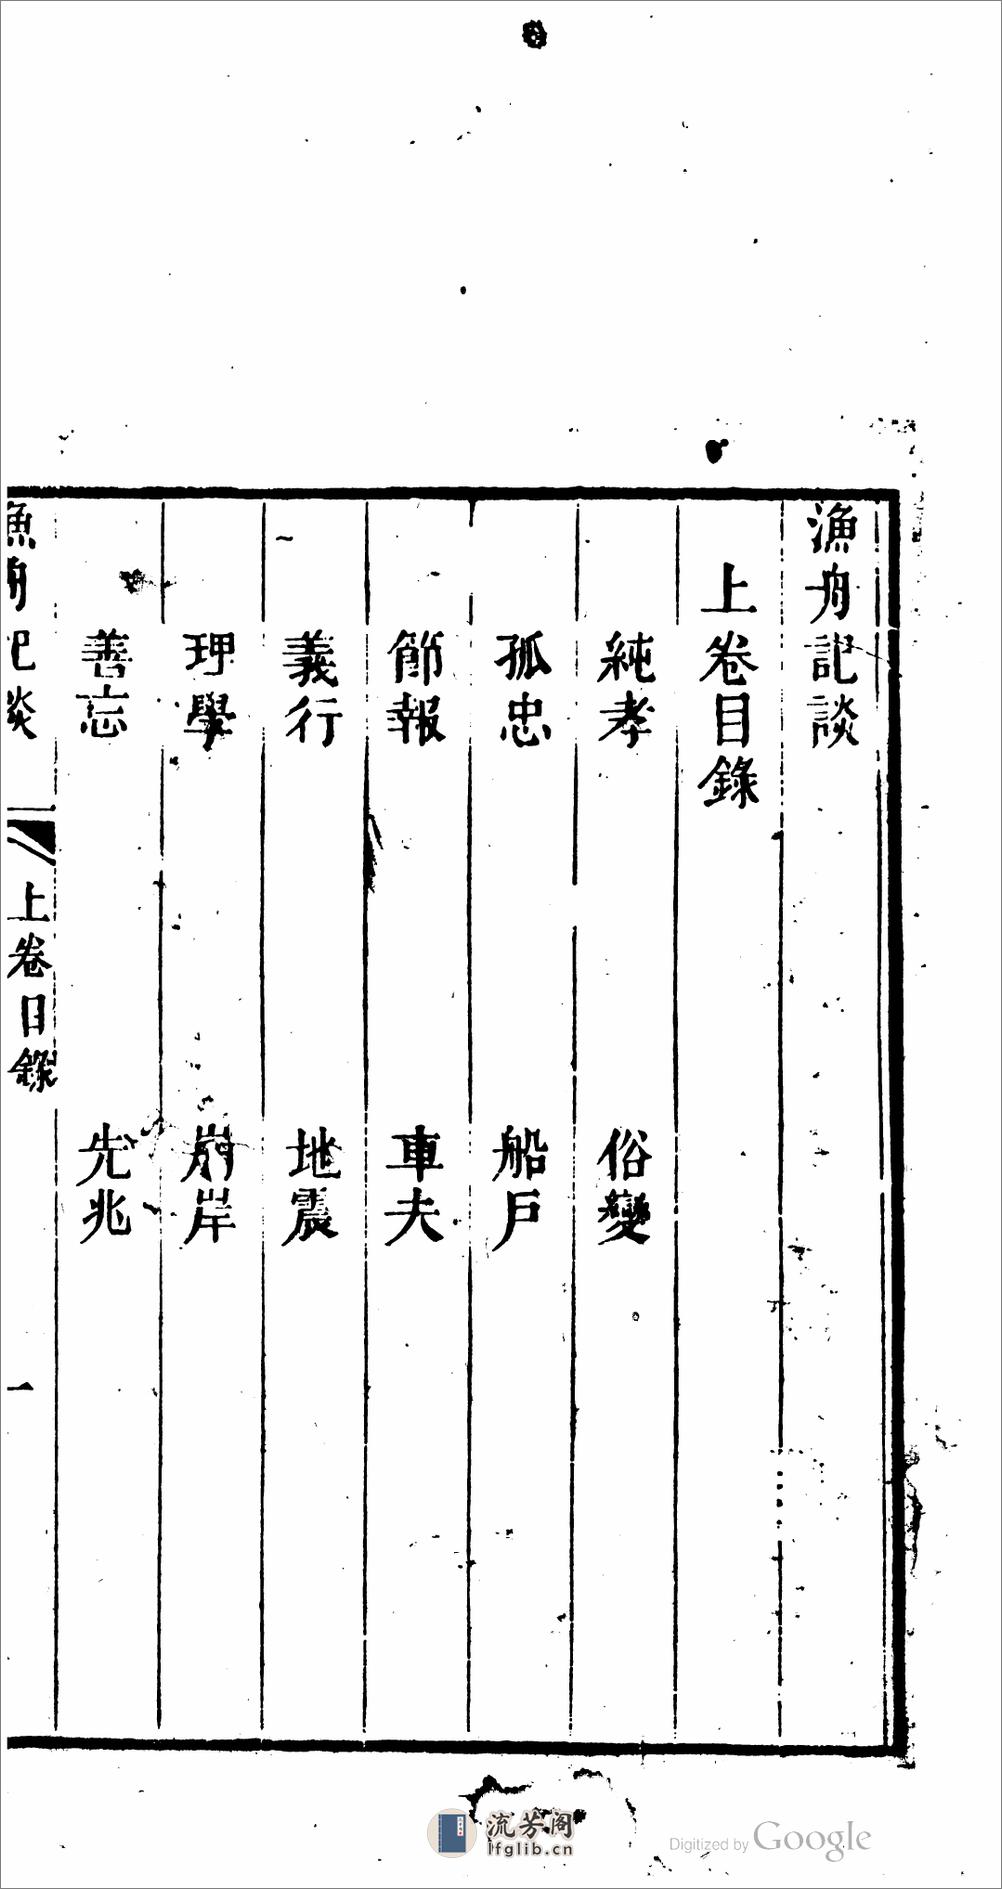 漁舟記談
上卷目錄
純孝 俗變
孤忠 船戶
節報 車夫
義行 地震
理學 崩岸
善忘 先兆
漁舟記談 上卷目錄 一
流芳阁
lfglib.cn
Digitized by Google